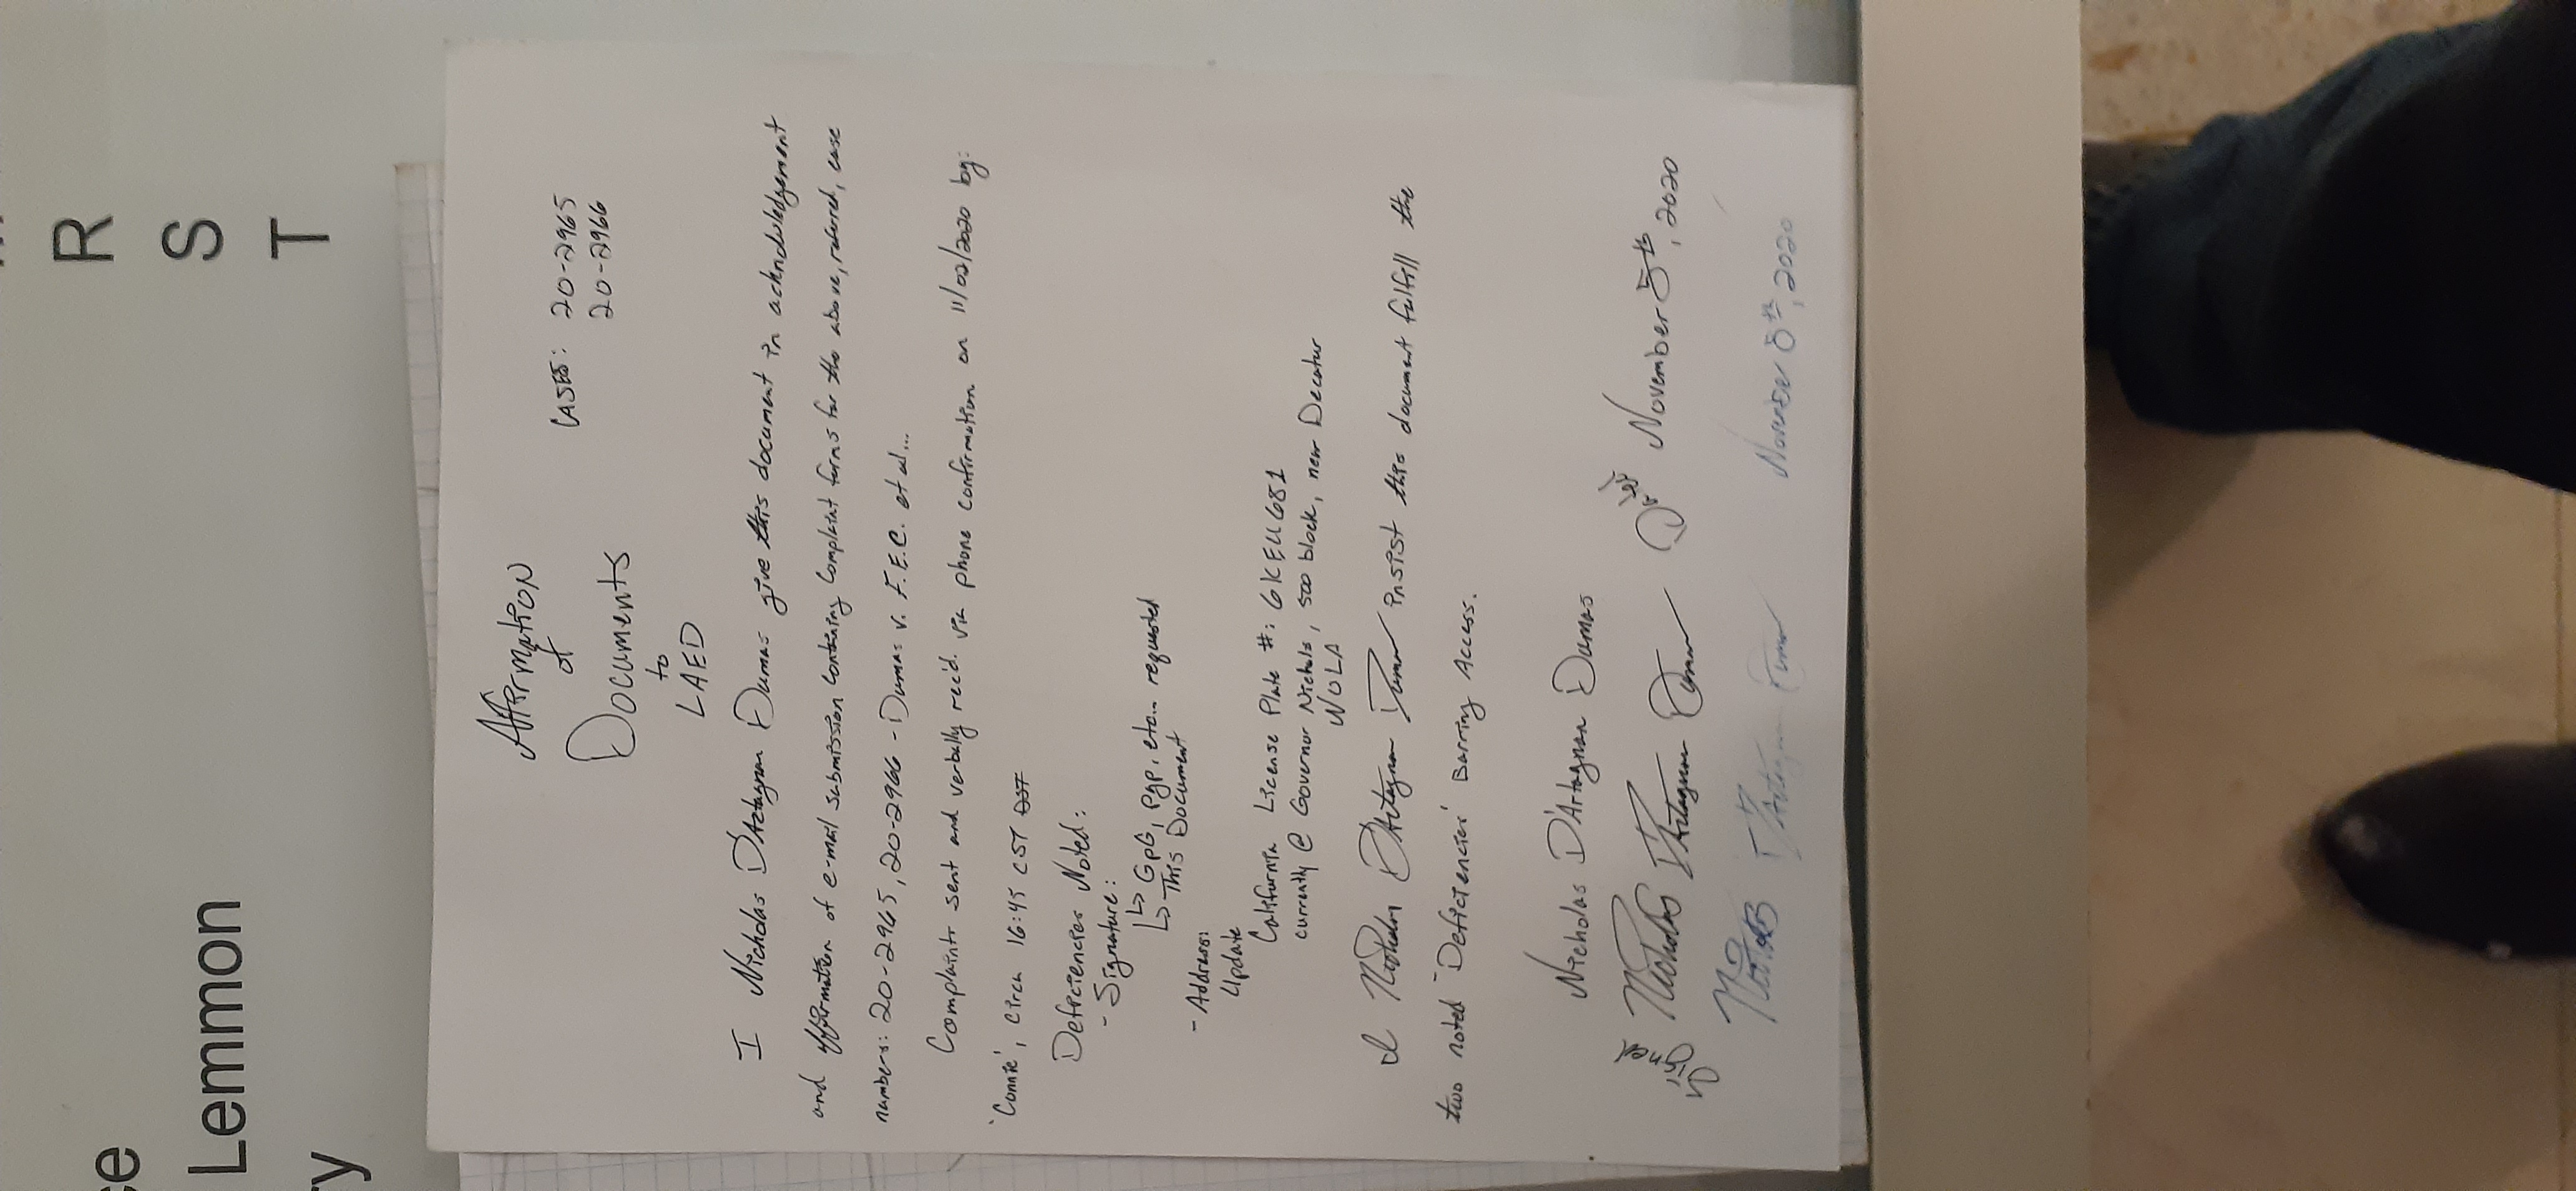 ce
Lemmon
ry
R
S
T
Affirmation
of
Documents
to
LAED
CASES: 20-2965
20-2966
I Nicholas D'Artagnan Dumas give this document in acknowledgement
and affirmation of e-mail submission containing Complaint forms for the above, referred, case
numbers: 20-2965, 20-2966 - Dumas v. F.E.C. et al...
Complaints sent and verbally rec'd. via phone confirmation on 11/02/2020 by:
'Connie', circa 16:45 CST DST
Deficiencies Noted:
- Signature:
↳ GpG, pgp, etc... requested
↳ This Document
- Address:
Update
California License Plate #: 6KEU681
currently @ Governor Nichols, 500 block, near Decatur
NOLA
I Nicholas D'Artagnan Dumas insist this document fulfill the
two noted 'Deficiencies' Barring Access.
Nicholas D'Artagnan Dumas
Signed Nicholas D'Artagnan Dumas Dated November 5th, 2020
Nicholas D'Artagnan Dumas November 5th, 2020